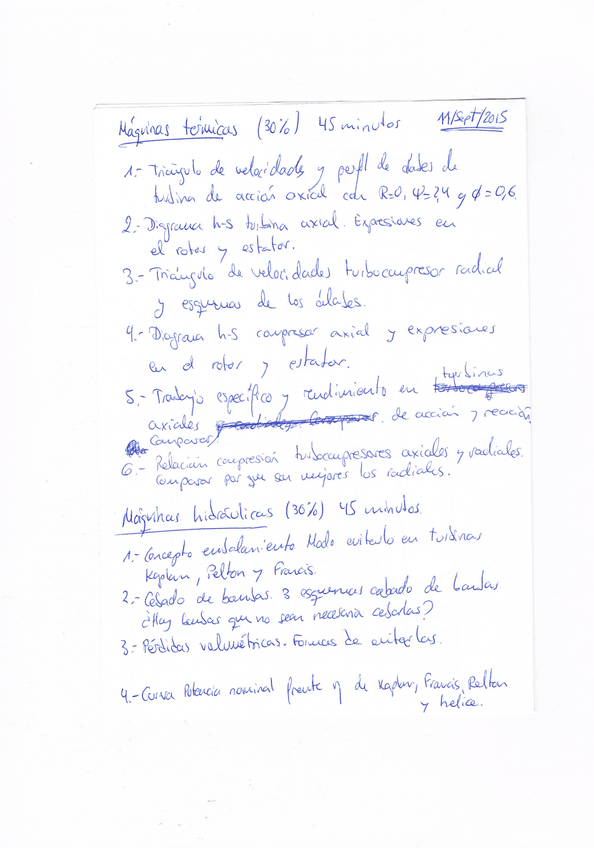 Máquinas térmicas (30%) 45 minutos 11/Sept/2015
1.- Triángulo de velocidades y perfil de álabes de
turbina de acción axial con R=0, Ψ=2,4 y ϕ=0,6.
2.- Diagrama h-s turbina axial. Expresiones en
el rotor y estator.
3.- Triángulo de velocidades turbocompresor radial
y esquemas de los álabes.
4.- Diagrama h-s compresor axial y expresiones
en el rotor y estator.
5.- Trabajo específico y rendimiento en turbinas
axiales de acción y reacción
Comparar
6.- Relación compresión turbocompresores axiales y radiales.
Comparar por que son mejores los radiales.
Máquinas hidráulicas (30%) 45 minutos.
1.- Concepto embalamiento Modo evitarlo en turbinas
Kaplan, Pelton y Francis.
2.- Cebado de bombas. 3 esquemas cebado de bombas
¿Hay bombas que no sean necesario cebarlas?
3.- Pérdidas volumétricas. Formas de evitarlas.
4.- Curva Potencia nominal frente η de Kaplan, Francis, Pelton
y hélice.